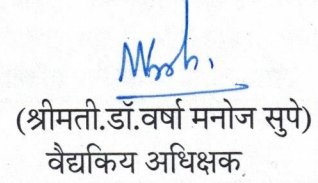 (श्रीमती.डॉ.वर्षा मनोज सुपे)
वैद्यकिय अधिक्षक